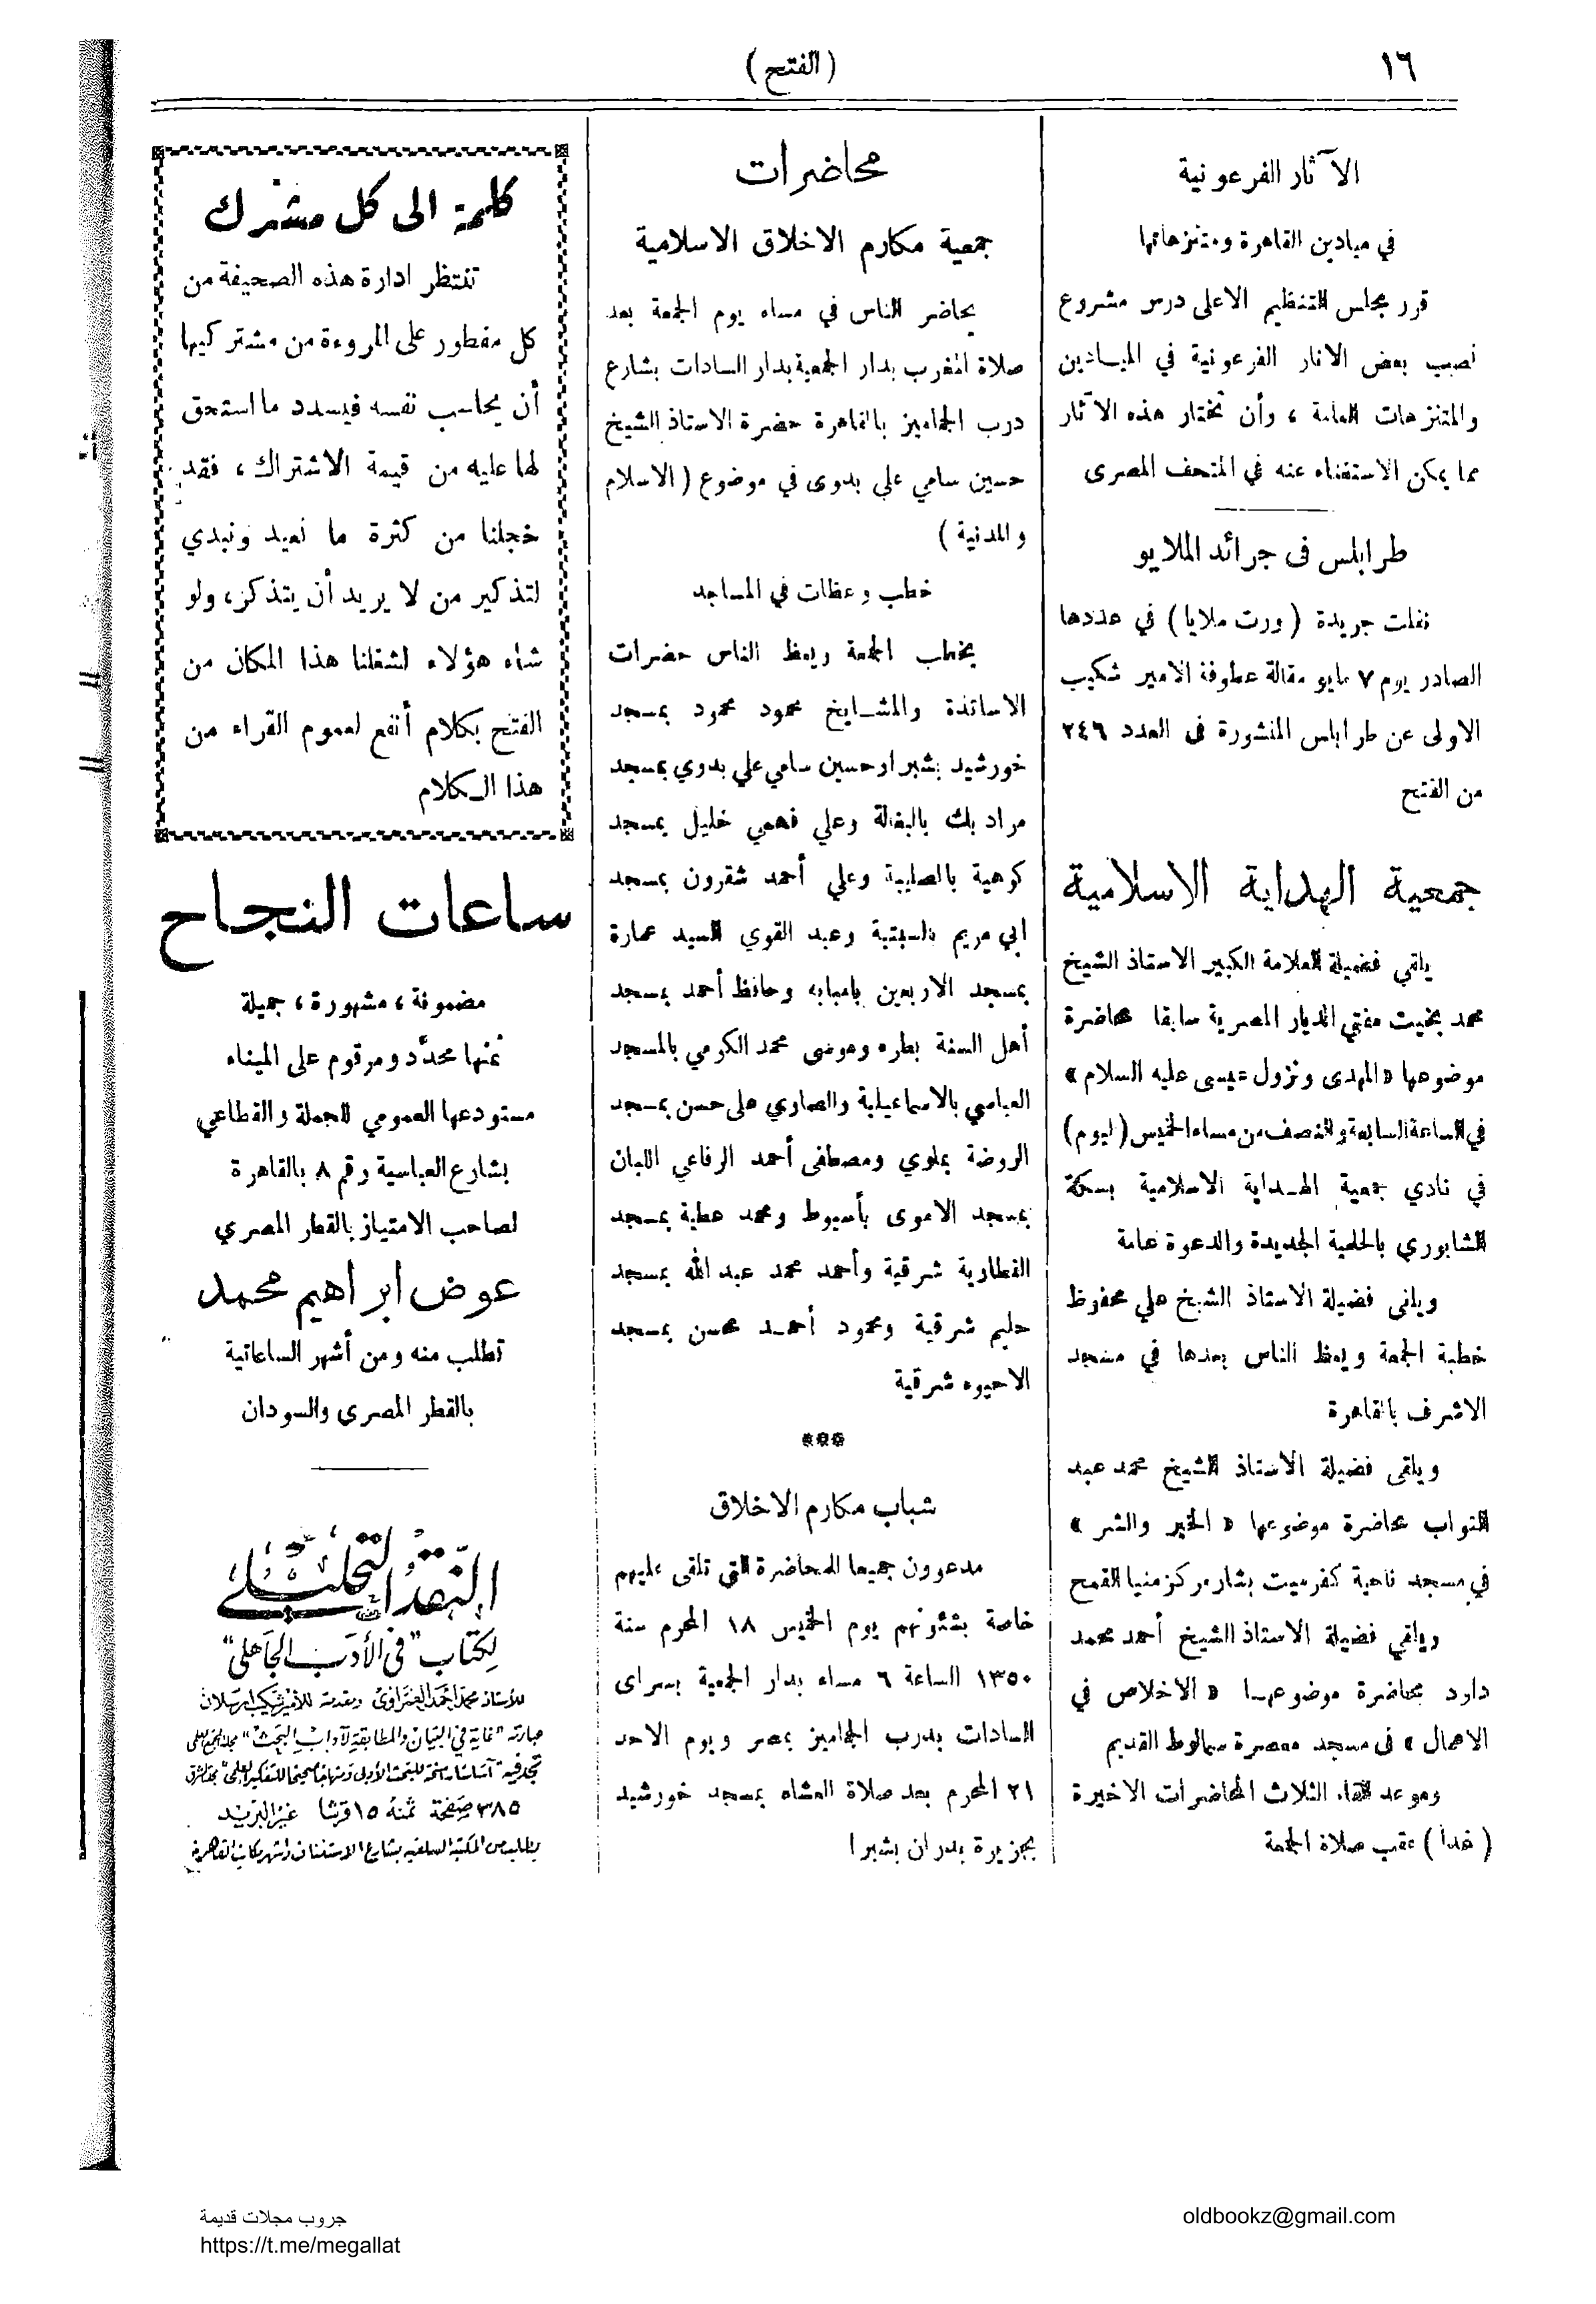 ١٦
( الفتح )
الآثار الفرعونية
في ميادين القاهرة ومتنزهاتها
قرر مجلس التنظيم الاعلى درس مشروع
نصب بعض الاثار الفرعونية في الميادين
والمتنزهات العامة ، وأن تختار هذه الآثار
مما يمكن الاستغناء عنه في المتحف المصرى
طرابلس فى جرائد الملايو
نقلت جريدة ( ورت ملايا ) في عددها
الصادر يوم ٧ مايو مقالة عطوفة الامير شكيب
الاولى عن طرابلس المنشورة فى العدد ٢٤٦
من الفتح
جمعية الهداية الاسلامية
يلقي فضيلة العلامة الكبير الاستاذ الشيخ
محمد بخيت مفتي الديار المصرية سابقا محاضرة
موضوعها « المهدى ونزول عيسى عليه السلام »
في الساعة السابعة والنصف من مساء الخميس ( اليوم )
في نادي جمعية الهداية الاسلامية بسكة
الشابوري بالحلمية الجديدة والدعوة عامة
ويلقى فضيلة الاستاذ الشيخ علي محفوظ
خطبة الجمعة ويعظ الناس بعدها في مسجد
الاشرف بالقاهرة
ويلقى فضيلة الاستاذ الشيخ محمد عبد
التواب محاضرة موضوعها « الخير والشر »
في مسجد ناحية كفرميت بشار مركز منيا القمح
ويلقي فضيلة الاستاذ الشيخ أحمد محمد
داود محاضرة موضوعها « الاخلاص في
الاعمال » فى مسجد معصرة سمالوط القديم
وموعد القاء الثلاث المحاضرات الاخيرة
( غدا ) عقب صلاة الجمعة
محاضرات
جمعية مكارم الاخلاق الاسلامية
يحاضر الناس في مساء يوم الجمعة بعد
صلاة المغرب بدار الجمعية بدار السادات بشارع
درب الجماميز بالقاهرة حضرة الاستاذ الشيخ
حسين سامي علي بدوى في موضوع ( الاسلام
والمدنية )
خطب وعظات في المساجد
يخطب الجمعة ويعظ الناس حضرات
الاساتذة والمشايخ محمود محمود بمسجد
خورشيد بشبرا وحسين سامي علي بدوي بمسجد
مراد بك بالبغالة وعلي فهمي خليل بمسجد
كوهية بالصليبة وعلي أحمد شقرون بمسجد
ابي مريم بالسبتية وعبد القوي السيد عمارة
بمسجد الاربعين بامبابه وحافظ أحمد بمسجد
أهل السنة بطره وموسى محمد الكرمي بالمسجد
العباسي بالاسماعيلية والصاري على حسن بمسجد
الروضة بملوي ومصطفى أحمد الرفاعي اللبان
بمسجد الاموى بأسيوط ومحمد عطية بمسجد
القطارية شرقية وأحمد محمد عبد الله بمسجد
حليم شرقية ومحمود أحمد محسن بمسجد
الاحيوه شرقية
***
شباب مكارم الاخلاق
مدعوون جميعا للمحاضرة التي تلقى عليهم
خاصة بشئونهم يوم الخميس ١٨ المحرم سنة
١٣٥٠ الساعة ٦ مساء بدار الجمعية بسراى
السادات بدرب الجماميز بمصر ويوم الاحد
٢١ المحرم بعد صلاة العشاء بمسجد خورشيد
بجزيرة بدران بشبرا
كلمة الى كل مشترك
تنتظر ادارة هذه الصحيفة من
كل مفطور على المروءة من مشتركيها
أن يحاسب نفسه فيسدد ما استحق
لها عليه من قيمة الاشتراك ، فقد
خجلنا من كثرة ما نعيد ونبدي
لتذكير من لا يريد أن يتذكر ، ولو
شاء هؤلاء لشغلنا هذا المكان من
الفتح بكلام أنفع لعموم القراء من
هذا الكلام
ساعات النجاح
مضمونة ، مشهورة ، جميلة
ثمنها محدّد ومرقوم على الميناء
مستودعها العمومي للجملة والقطاعي
بشارع العباسية رقم ٨ بالقاهرة
لصاحب الامتياز بالقطر المصري
عوض ابراهيم محمد
تطلب منه ومن أشهر الساعاتية
بالقطر المصرى والسودان
النقد التحليلي
لكتاب "في الأدب الجاهلي"
للأستاذ محمد أحمد الغمراوى ومقدمة للأمير شكيب ارسلان
عبارته "غاية في البيان والمطابقة لآداب البحث" مجلة المجمع العلمي
تجد فيه "أساسا راسخا للبحث الأدبى ومنهاجا صحيحا للتفكير العلمي"
٣٨٥ صفحة ثمنه ١٥ قرشا غير البريد
يطلب من المكتبة السلفية بشارع الاستئناف واشهر مكاتب القاهرة
جروب مجلات قديمة
https://t.me/megallat
oldbookz@gmail.com